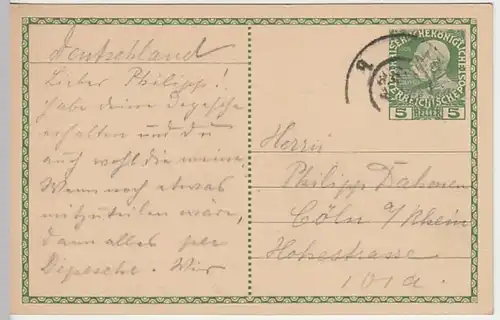 Deutschland
Lieber Philipp!
habe deine Depesche
erhalten und du
auch wohl die meine.
Wenn noch etwas
mitzuteilen wäre,
dann alles per
Depesche. Wir
KAISERLICHEKÖNIGLICHE
ÖSTERREICHISCHE
5 5
Herrn
Philipp Dahmen
Cöln a/Rhein
Hohestrasse
101a.